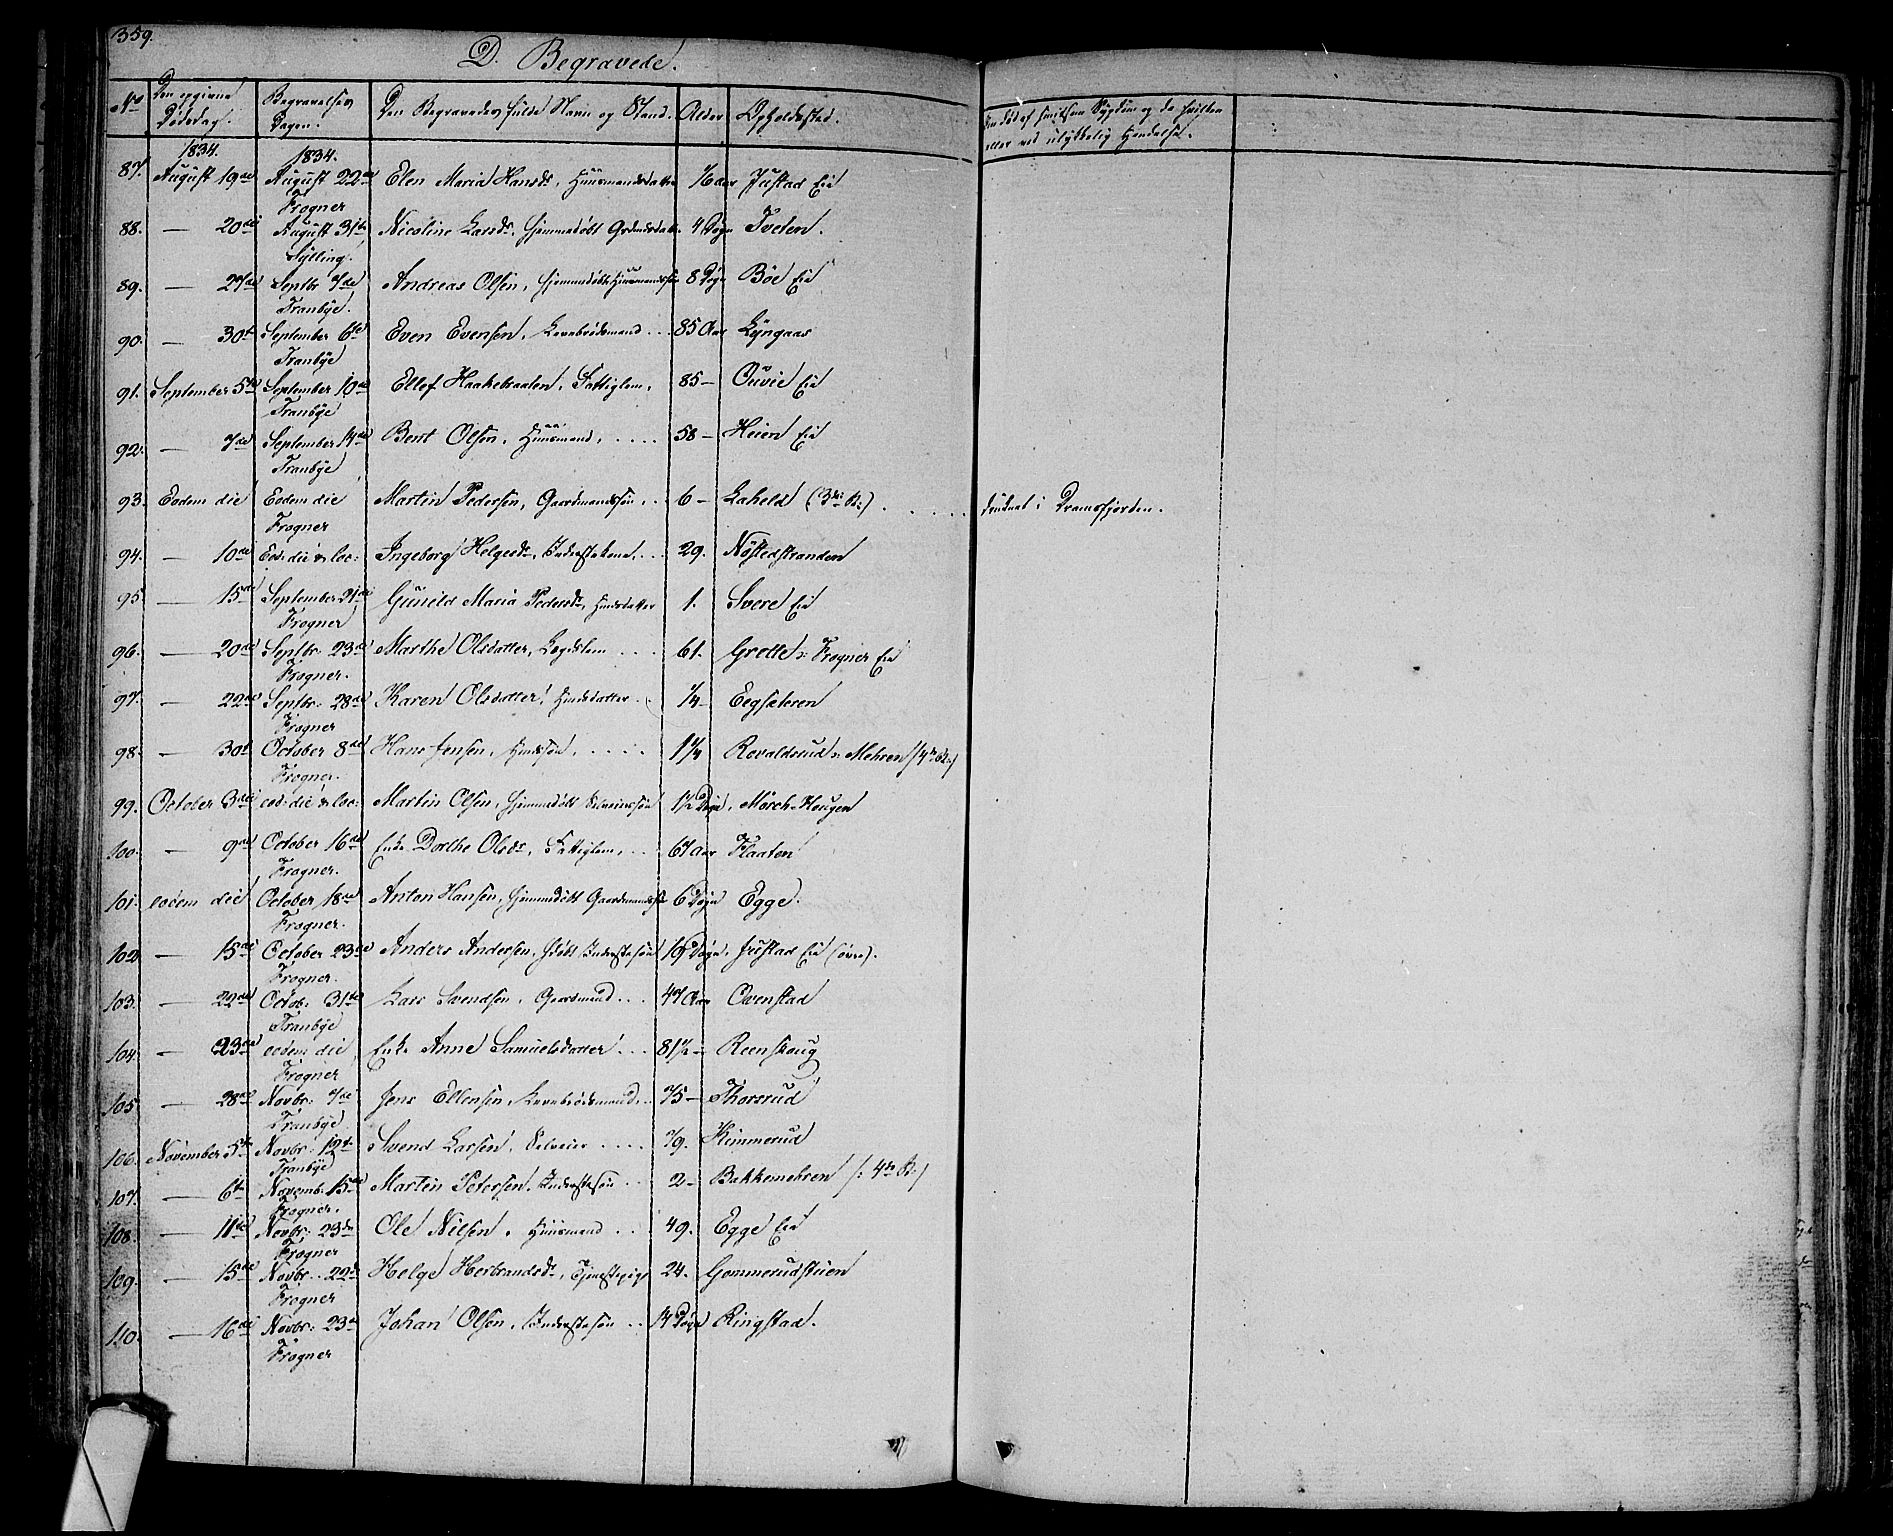 359.
D. Begravede.
No Den opgivne Dødsdag. Begravelses Dagen. Den Begravedes fulde Navn og Stand. Alder Opholdssted. Om død af Sygdom og da hvilken
eller ved ulykkelig Hændelse.
1834. 1834.
87. August 19de August 22de Elen Maria Hansdr, Huusmandsdatter 16 aar Justad Eie
Frogner
88. — 20de August 31te Nicoline Larsdr, hjemmedøbt 4 Døgn Tveten.
Sylling.
89. — 27de Septbr 7de Andreas Olsen, hjemmedøbt Huusmandssøn 8 Døgn Böe Eie
Tranbye.
90. — 30te September 6te Even Evensen, Levebrødsmand ... 85 Aar Lyngaas
Tranbye
91. September 5te September 10de Ellef Haakelaaten, Fattiglem, 85 — Ouvie Eie
Tranbye
92. — 7de September 14de Bent Olsen, Huusmand, .... 58 — Heien Eie
Tranbye
93. Eodem die Eodem die Martin Pedersen, Gaardmandssøn, .. 6 — Laheld (3de R:) ..... druknet i Dramsfjorden.
Frogner
94. — 10de Eod: die & loc: Ingeborg Helgesdr, Inderstekone, .. 29. Nöstedstranden
95 — 15de September 21de Gunild Maria Pedersdr, Huusdatter 1. Svere Eie
Frogner
96. — 20de Septbr. 23de Marthe Olsdatter, Lægdslem .... 61. Grette v: Frogner Eie
Frogner.
97. — 22de Septbr: 28de Karen Olsdatter, Huusdatter .. 1/4 — Eegsæteren
Frogner
98. — 30te October 8de Hans Jensen, Huussøn, ..... 1 1/4 Rovaldsrud v: Mehren /4de R:/
Frogner.
99. October 3die eod: die & loc: Martin Olsen, hjemmedøbt Selveiersøn 1 1/2 Døgn. Mörch-Hougen
100. — 9de October 16de Enke Dorthe Olsdr, Fattiglem, .. 67 aar Flaaten
Frogner.
101. eodem die October 18de Anton Hansen, hjemmedøbt Gaardmandssøn 6 Døgn Egge.
Frogner.
102. — 15de October 23de Anders Andersen, hdøbt Inderstesøn 19 Døgn. Justad Eie (övre).
Frogner.
103. — 22de Octob: 31te Lars Svendsen, Gaardmand ... 47 Aar Ovenstad
Tranbye
104. — 23de eodem die Enke Anne Samuelsdatter ... 81 1/2 — Reenskaug
Frogner
105 — 28de Novbr: 7de Jens Ellensen, Levebrødsmand .. 75 — Thorsrud
Tranbye
106. November 5te Novbr: 12te Svend Larsen, Selveier .... 79. Kimmerud
Tranbye
107. — 6te Novemb: 15de Martin Petersen, Inderstesøn .. 2 — Bakkemehren /: 4de R:/
Frogner.
108. — 11te Novbr: 23de Ole Nilsen, Huusmand ... 49. Egge Eie
Frogner
109. — 15de Novbr.. 22de Helge Herbrandsdr, Tjenestepige 24. Gommerudstuen
Frogner
110. — 16de Novbr: 23de Johan Olsen, Inderstesøn .. 14 Døgn Ringstad.
Frogner